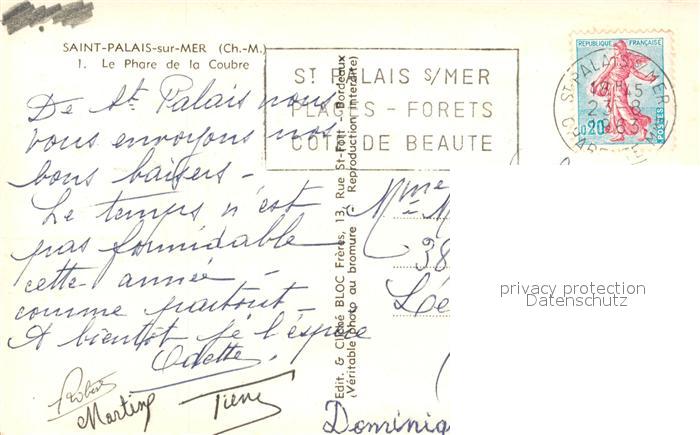 SAINT-PALAIS-sur-MER (Ch.-M.)
1. Le Phare de la Coubre
ST PALAIS S/MER
PLAGES - FORETS
COTE DE BEAUTE
REPUBLIQUE FRANÇAISE
0,20
POSTES
ST PALAIS S/MER
18H45
23-8
1963
De St. Palais nous
vous envoyons nos
bons baisers -
Le temps n'est
pas formidable
cette année -
comme partout -
A bientôt je l'espère
Odette.
Robert
Martine
Pierre
Dominiq
Edit. & Cliché BLOC Frères, 13, Rue St-Fort - Bordeaux
(Véritable photo au bromure - Reproduction interdite)
Mme
38
privacy protection
Datenschutz